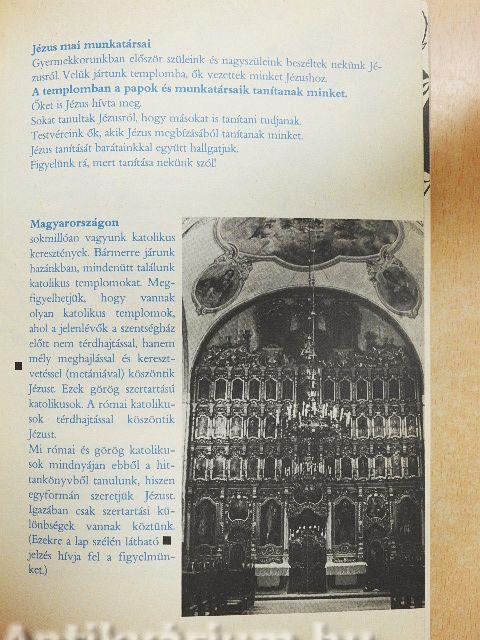 Jézus mai munkatársai
Gyermekkorunkban először szüleink és nagyszüleink beszéltek nekünk Jé-
zusról. Velük jártunk templomba, ők vezettek minket Jézushoz.
A templomban a papok és munkatársaik tanítanak minket.
Őket is Jézus hívta meg.
Sokat tanultak Jézusról, hogy másokat is tanítani tudjanak.
Testvéreink ők, akik Jézus megbízásából tanítanak minket.
Jézus tanítását barátainkkal együtt hallgatjuk.
Figyelünk rá, mert tanítása nekünk szól!
Magyarországon
sokmillóan vagyunk katolikus
keresztények. Bármerre járunk
hazánkban, mindenütt találunk
katolikus templomokat. Meg-
figyelhetjük, hogy vannak
olyan katolikus templomok,
ahol a jelenlévők a szentségház
előtt nem térdhajtással, hanem
mély meghajlással és kereszt-
vetéssel (metániával) köszöntik
Jézust. Ezek görög szertartású
katolikusok. A római katoliku-
sok térdhajtással köszöntik
Jézust.
Mi római és görög katoliku-
sok mindnyájan ebből a hit-
tankönyvből tanulunk, hiszen
egyformán szeretjük Jézust.
Igazában csak szertartási kü-
lönbségek vannak köztünk.
(Ezekre a lap szélén látható ■
jelzés hívja fel a figyelmün-
ket.)
Antikvárium.hu